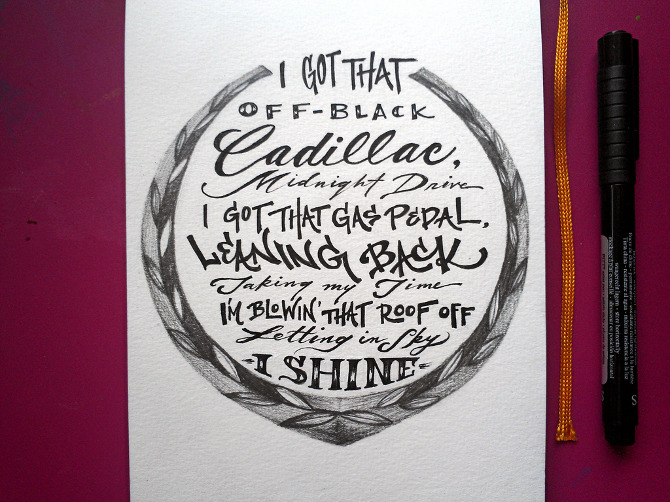 I GOT THAT
OFF-BLACK
Cadillac,
Midnight Drive
I GOT THAT GAS PEDAL,
LEANING BACK
Taking my Time
I'M BLOWIN' THAT ROOF OFF
Letting in Sky
-I SHINE-
S